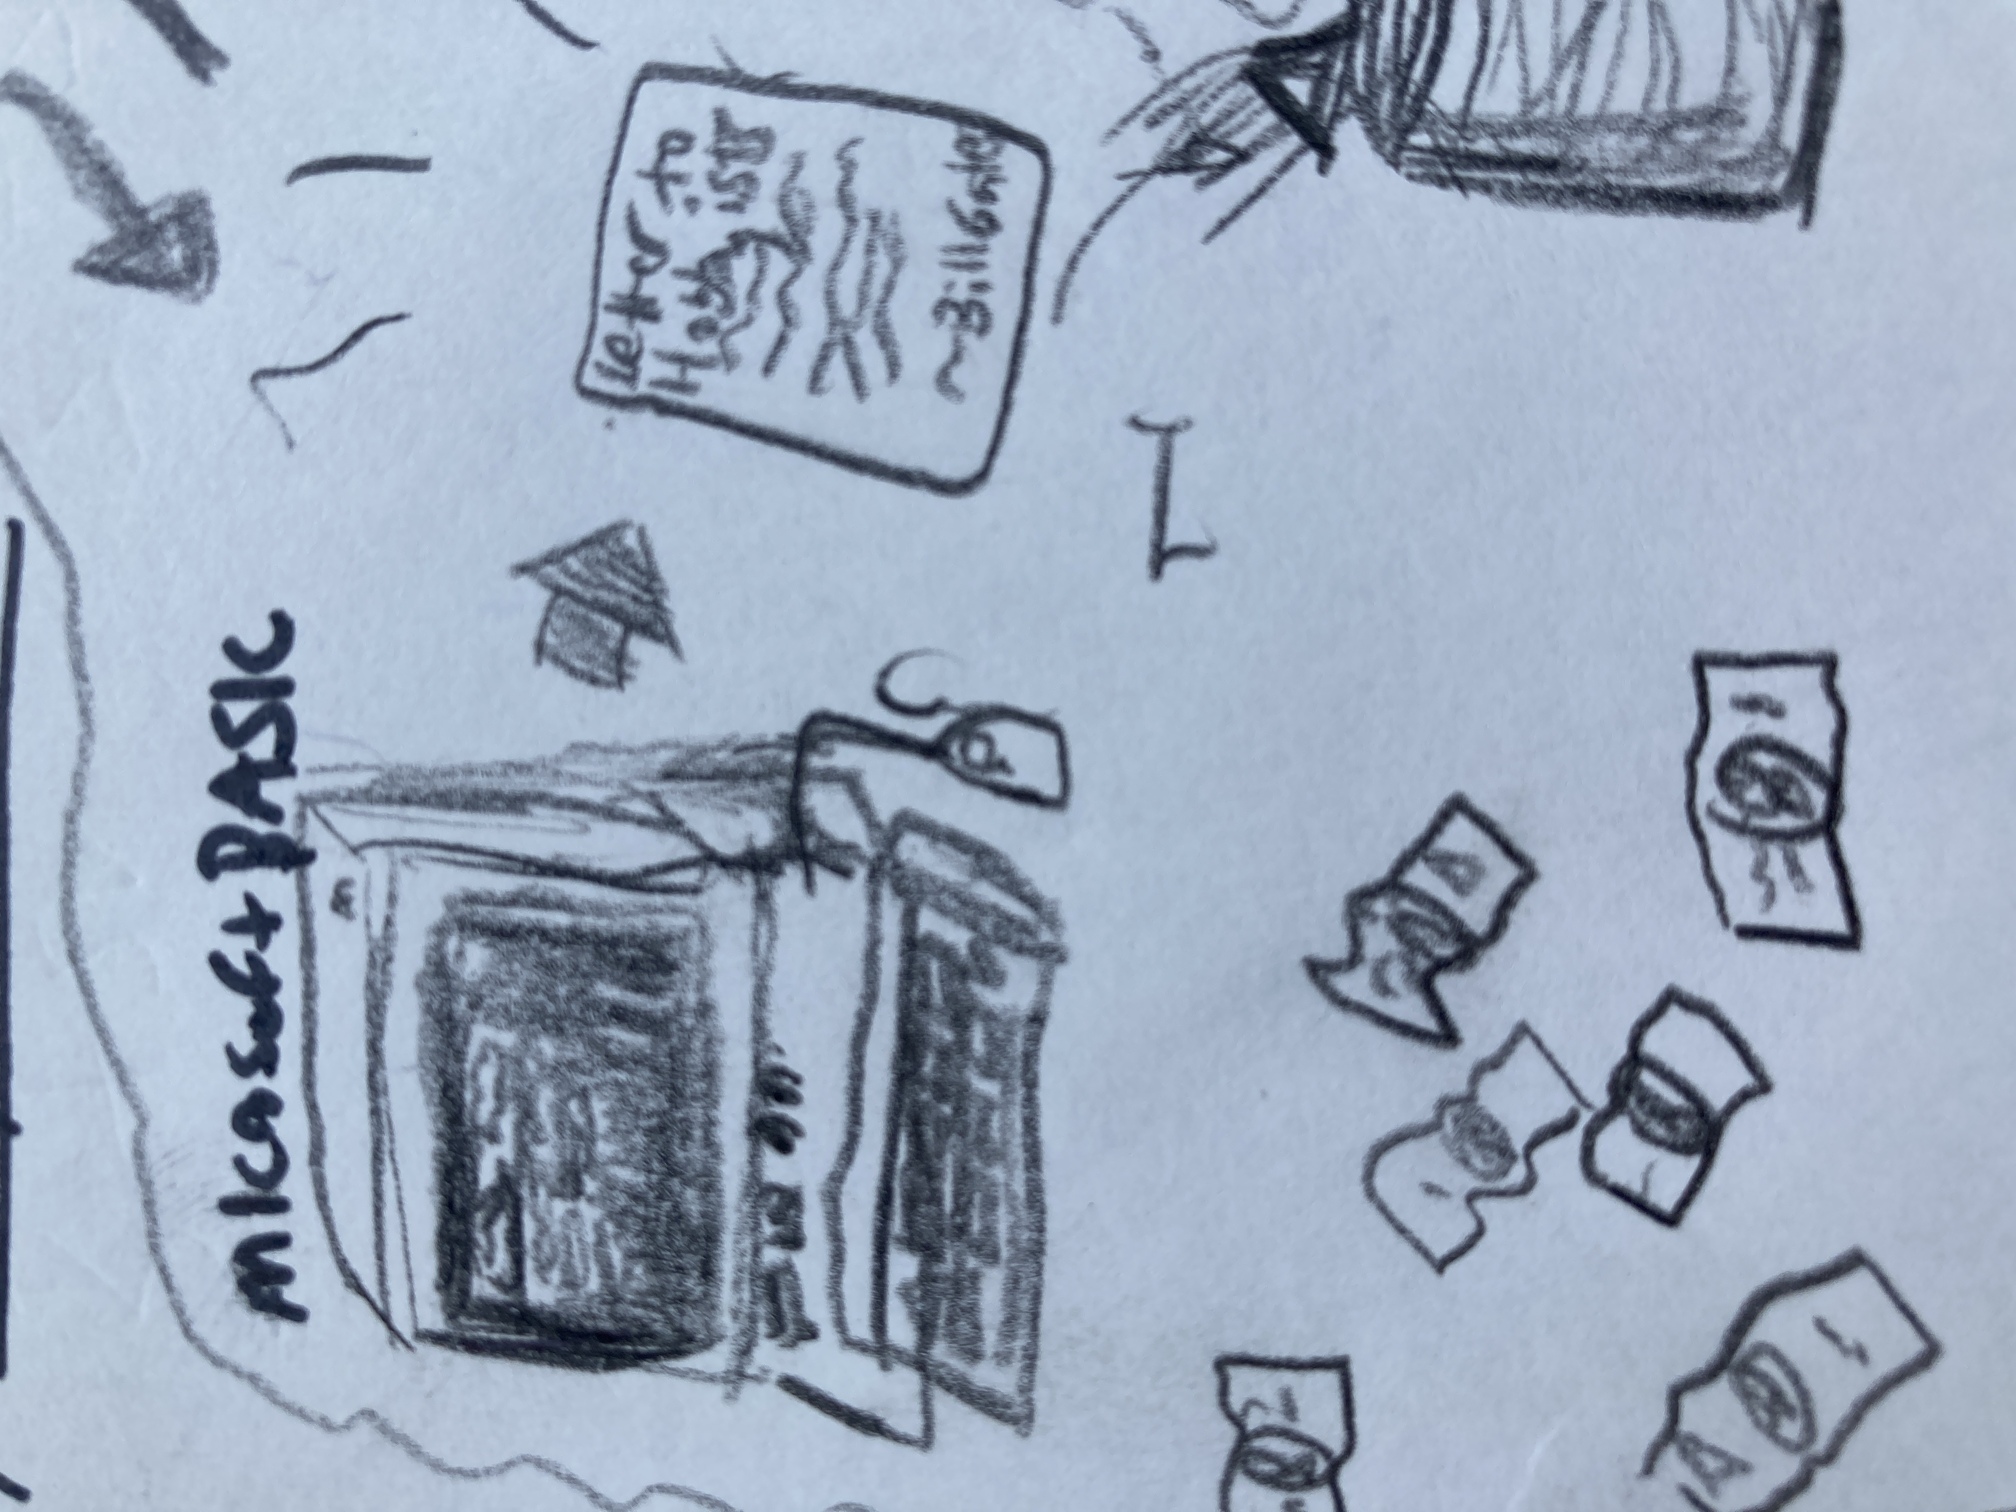 MIcrosoft BASIC
Letter to
Hobby ists
~Bill Gates